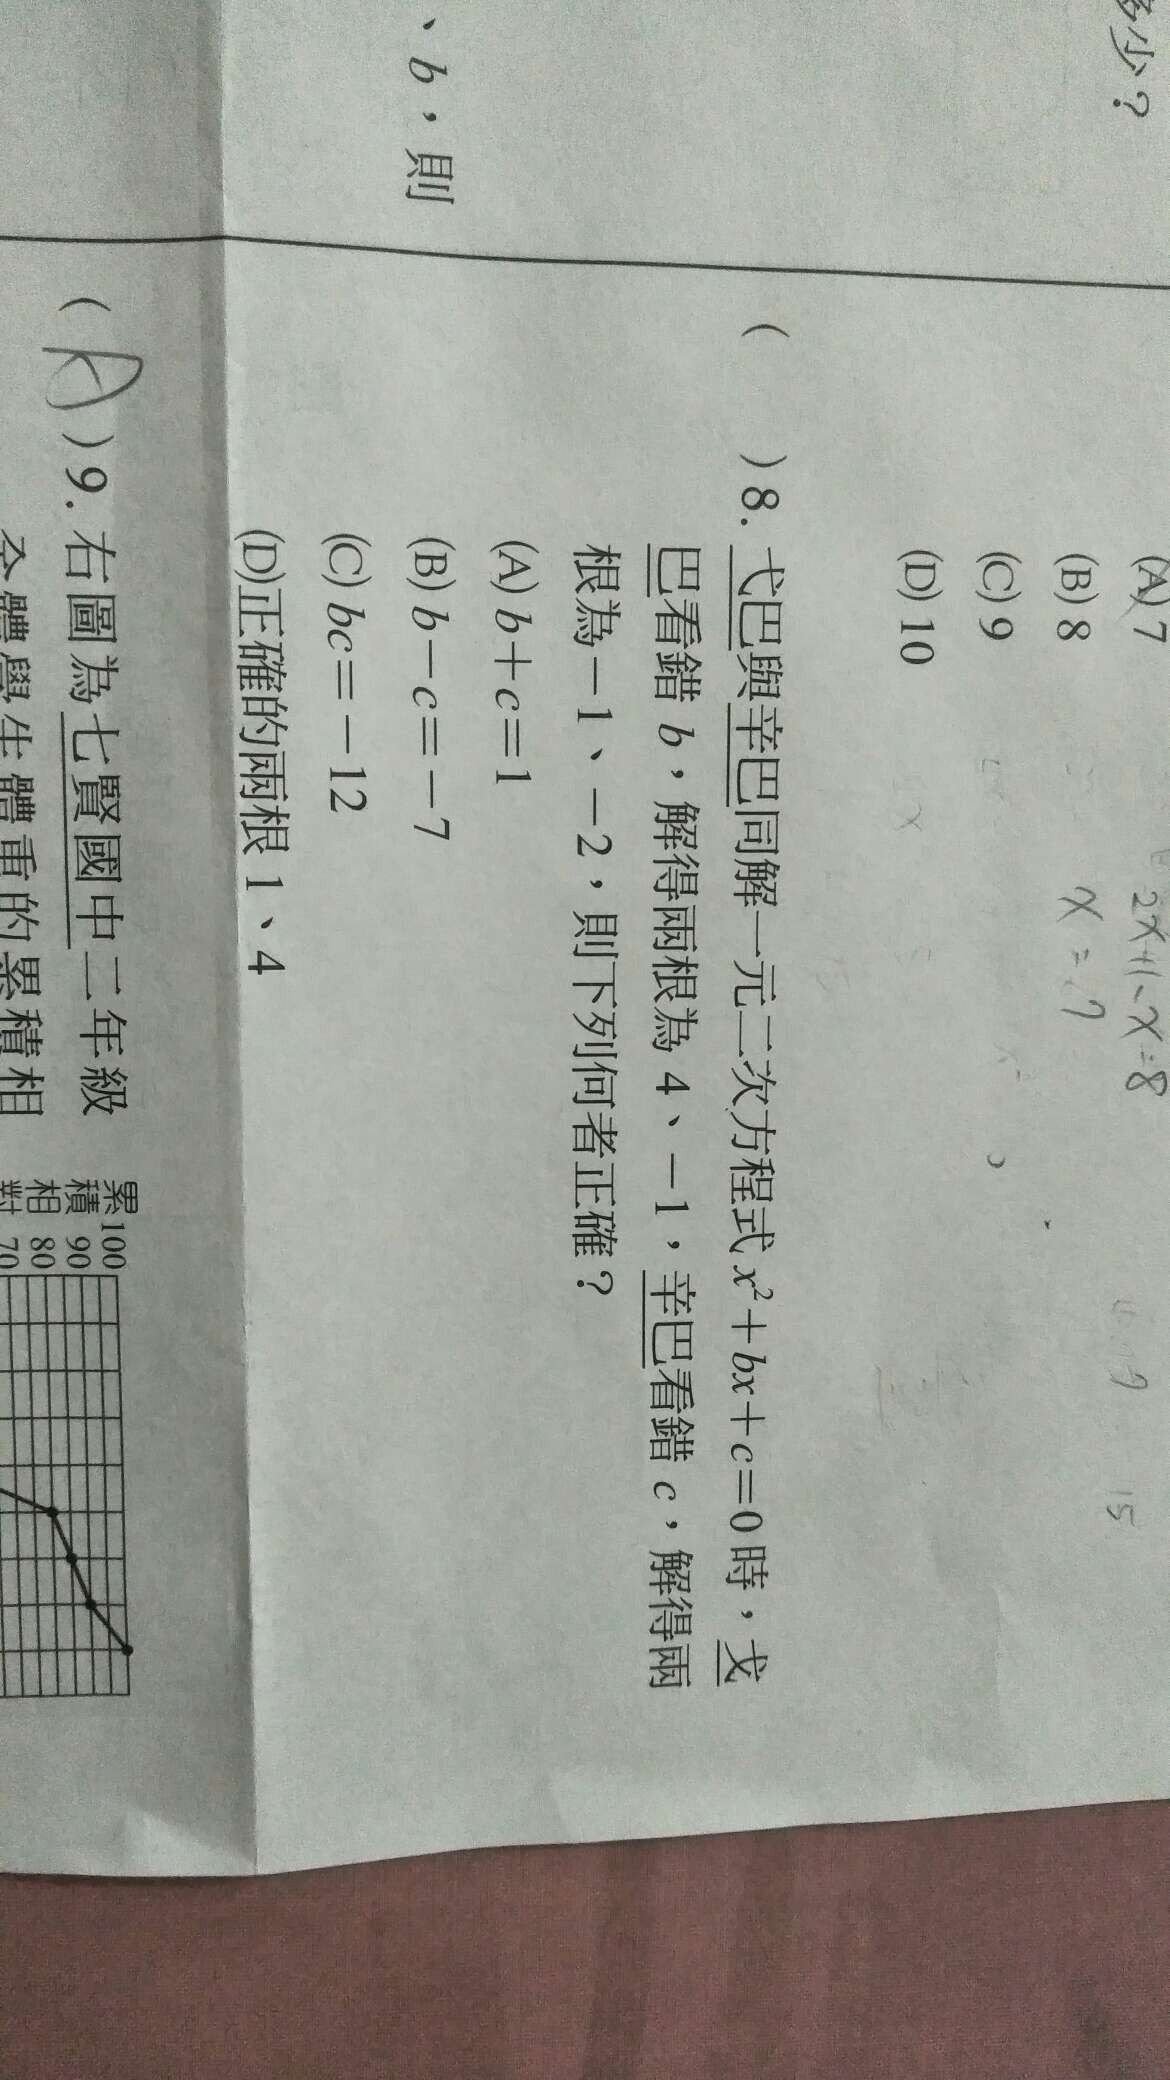 多少？
、b，則
(A) 7
(B) 8
(C) 9
(D) 10
2x+1-x=8
x=7
15
(　) 8. 弋巴與辛巴同解一元二次方程式 x²＋bx＋c＝0 時，戈
巴看錯 b，解得兩根為 4、－1，辛巴看錯 c，解得兩
根為－1、－2，則下列何者正確？
(A) b＋c＝1
(B) b－c＝－7
(C) bc＝－12
(D)正確的兩根 1、4
(A) 9. 右圖為七賢國中二年級
全體學生體重的累積相
累積相對
100
90
80
70